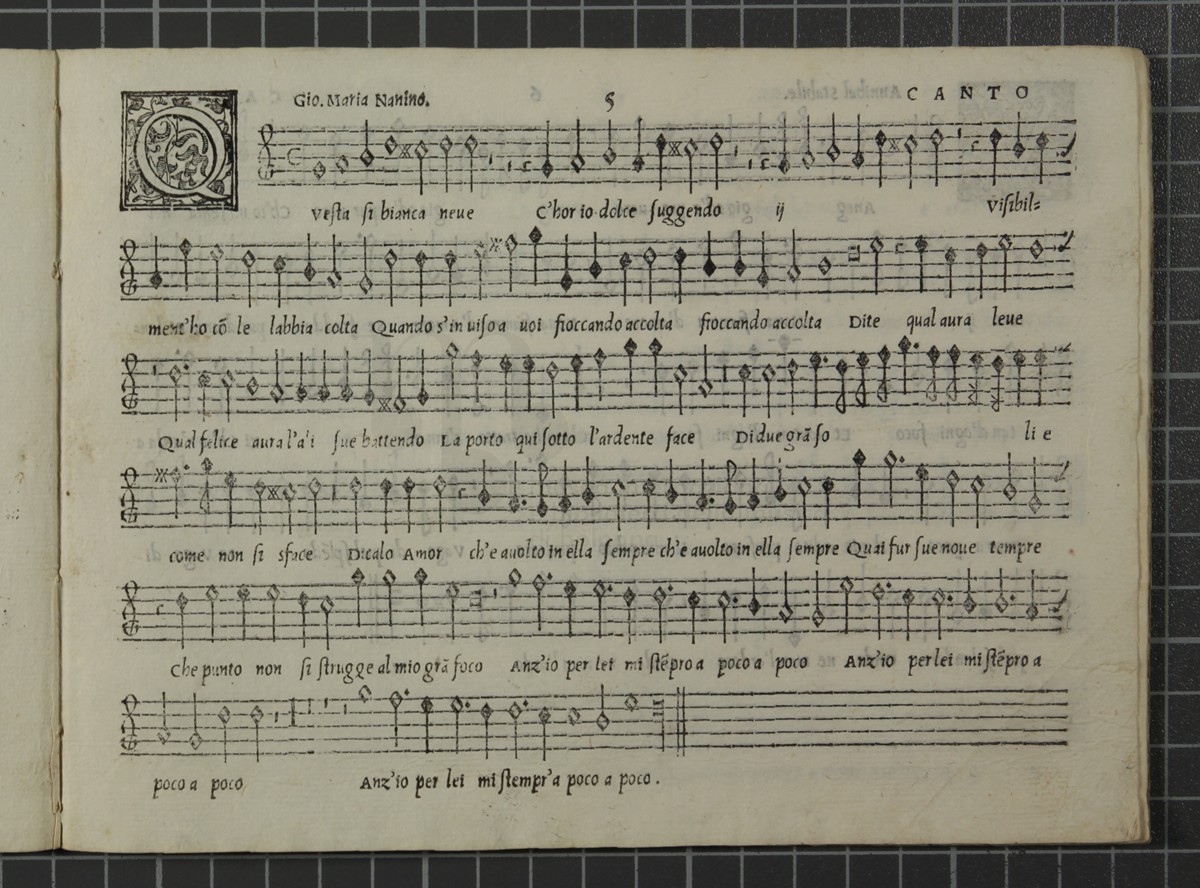 Gio. Maria Nanino. 5 CANTO
Q Vesta si bianca neue C'hor io dolce suggendo ij Visibil=
ment'ho cõ le labbia colta Quando s'in uiso a uoi fioccando accolta fioccando accolta Dite qual aura leue
Qual felice aura l'ali sue battendo La porto qui sotto l'ardente face Di due grã so li e
come non si sface Dicalo Amor ch'e auolto in ella sempre ch'e auolto in ella sempre Quai fur sue noue tempre
Che punto non si strugge al mio grã foco Anz'io per lei mi stẽpro a poco a poco Anz'io per lei mi stẽpro a
poco a poco Anz'io per lei mi stempr'a poco a poco.